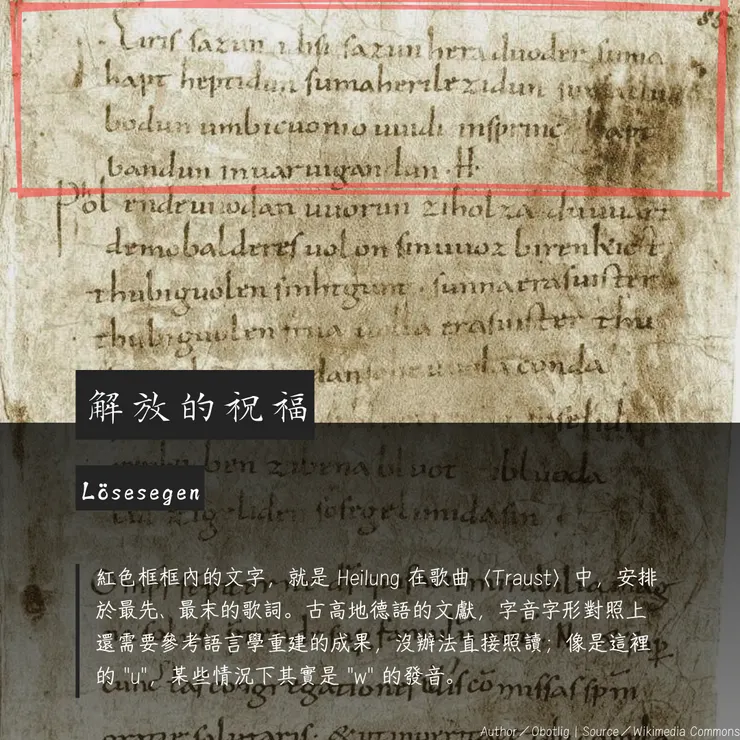 85
Eiris sazun idisi sazun hera duoder suma
hapt heptidun sumaherilezidun
bodun umbicuonio uuidi insprinc hapt
bandun inuaruigandun · H ·
Phol endeuuodan uuorun ziholza duuuart
demobalderesuolon sinuuoz birenkict
thubiguolen sinhtgunt · sunnaerasuister
thubiguolen friia uolla erasuister thu
uuolaconda
解放的祝福
ben zibena bluot zibluoda
Lösesegen
lid zigeliden sosegelimidasin
紅色框框內的文字，就是 Heilung 在歌曲〈Traust〉中，安排
於最先、最末的歌詞。古高地德語的文獻，字音字形對照上
還需要參考語言學重建的成果，沒辦法直接照讀；像是這裡
的 "u"，某些情況下其實是 "w" 的發音。
Author／Obotlig | Source／Wikimedia Commons